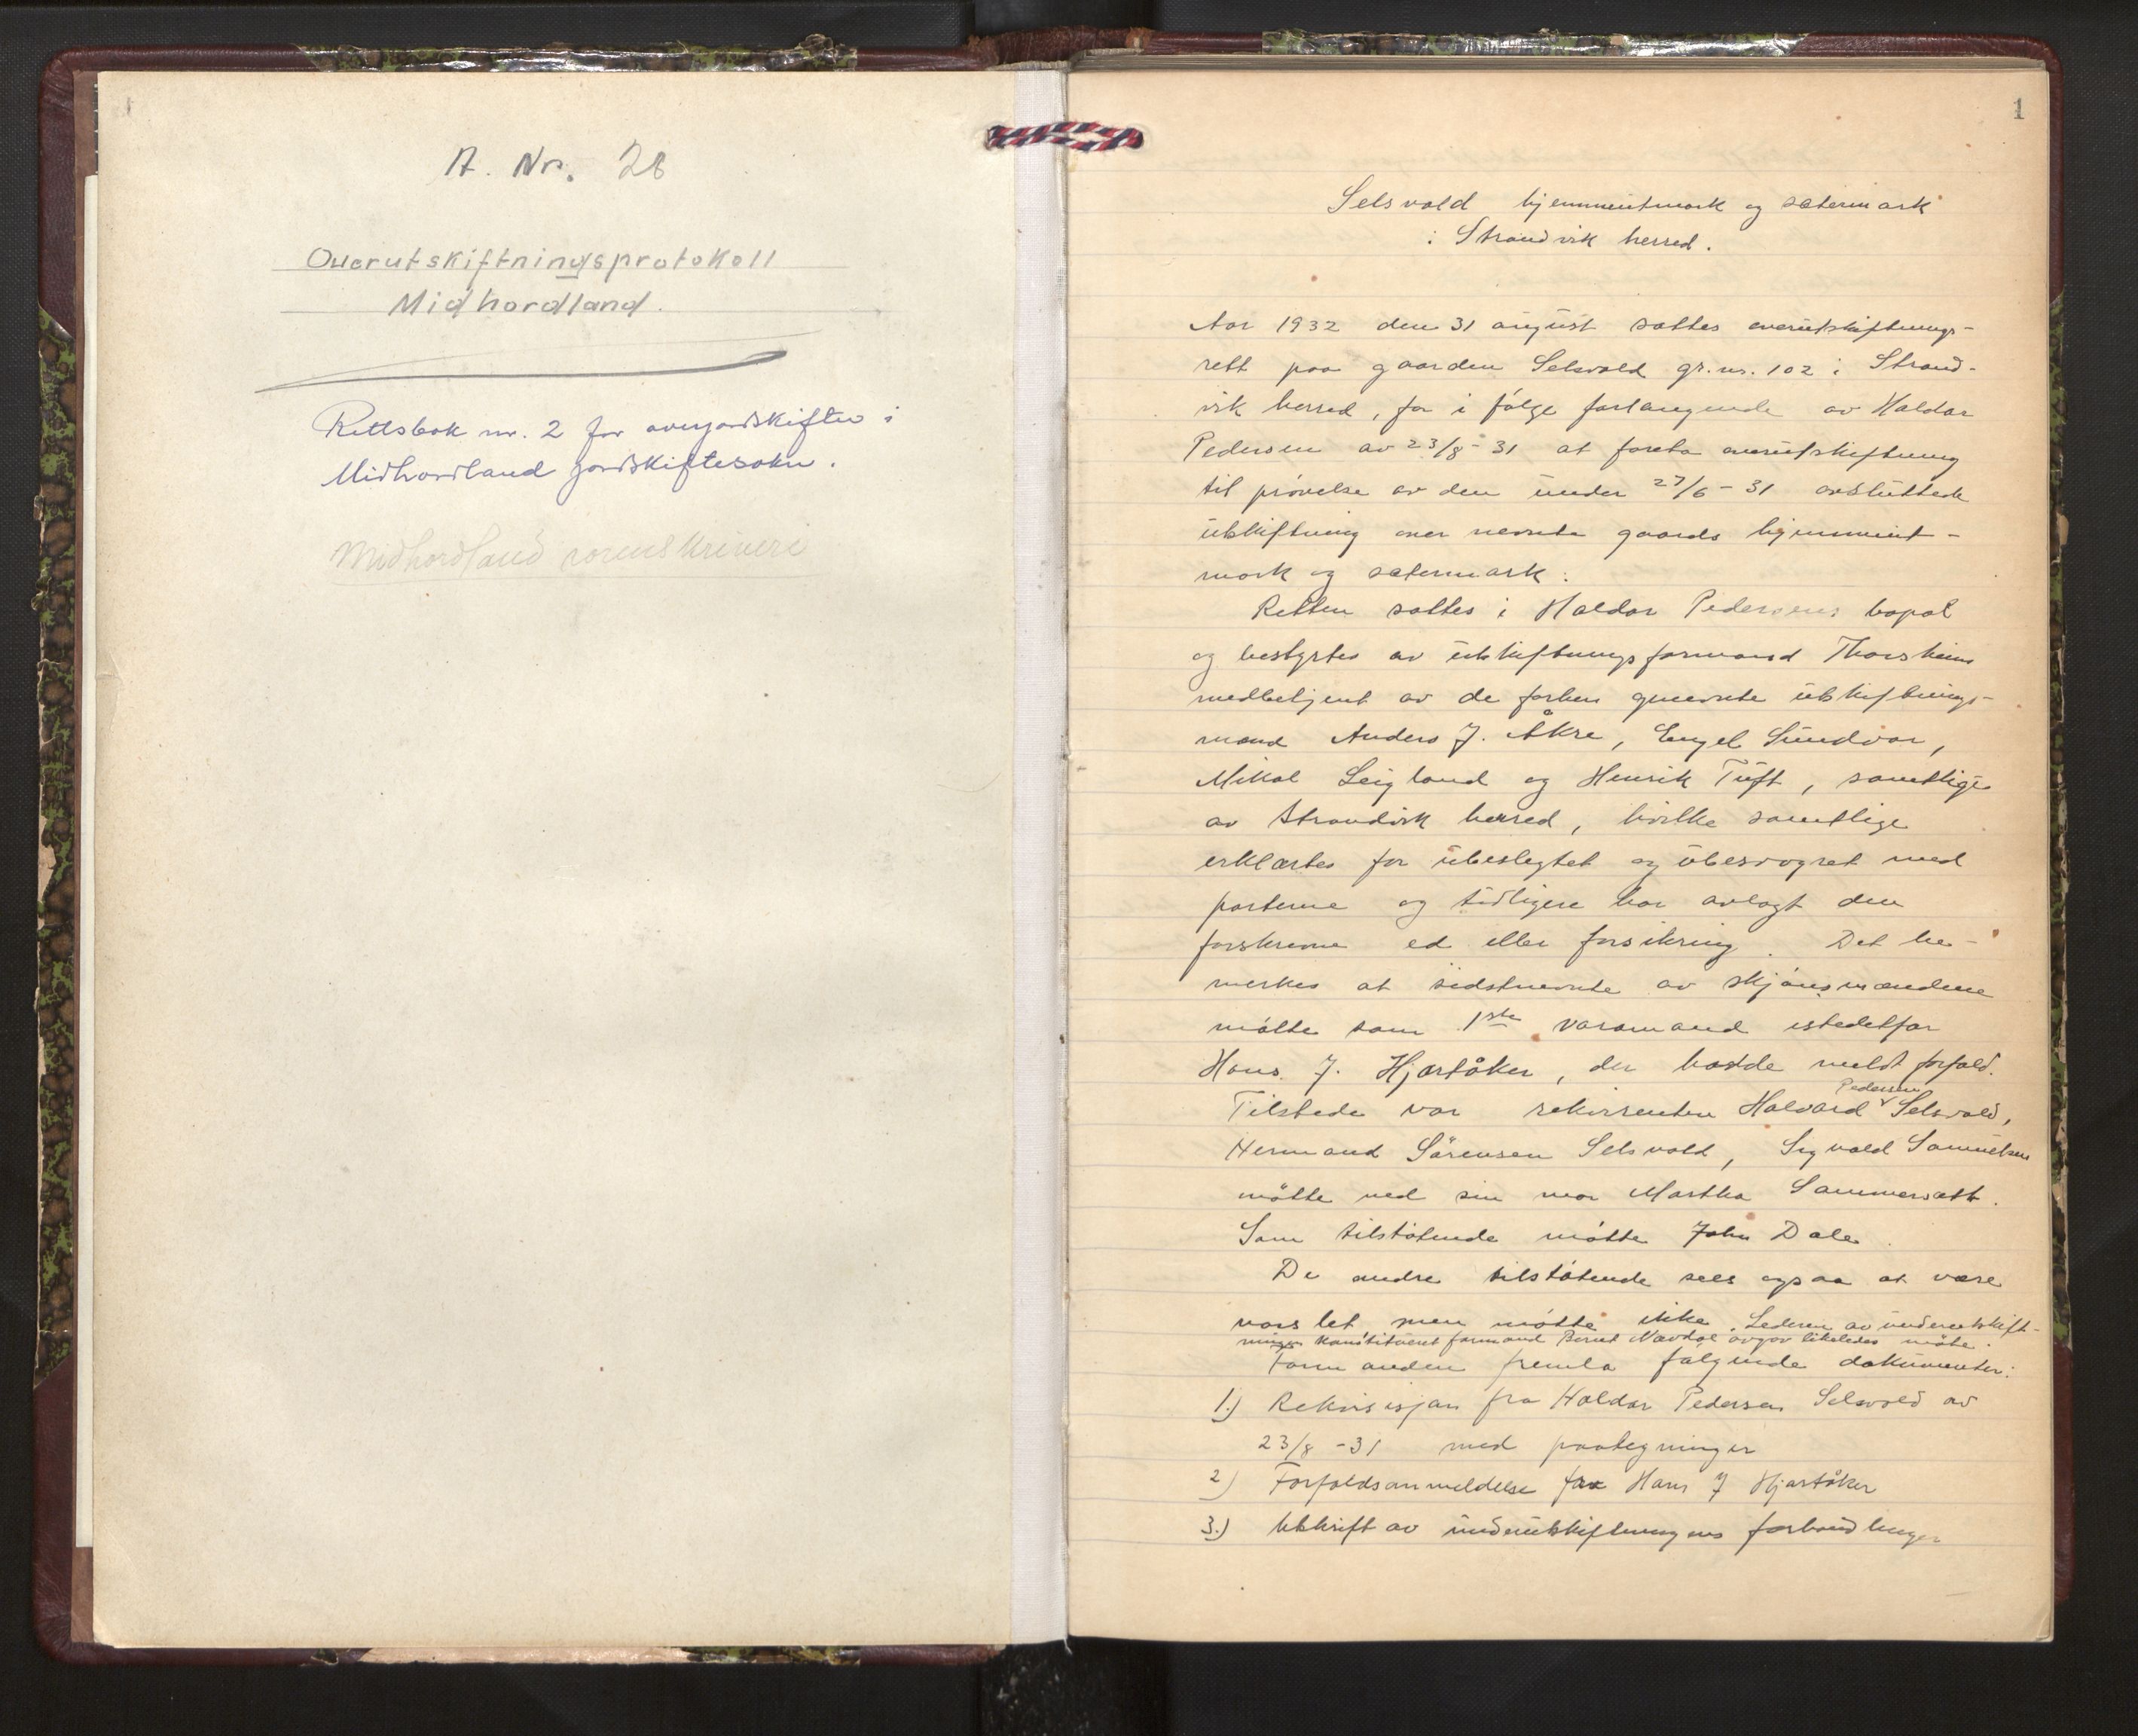 A. Nr. 28
Overutskiftningsprotokoll
Midhordland.
Rettsbok nr. 2 for overjordskifter i
Midhordland jordskiftesokn.
Midhordland sorenskriveri
1
Selsvold hjemmeutmark og sætermark
i Strandvik herred.
Aar 1932 den 31 august sattes overutskiftnings-
rett paa gaarden Selsvold gr.nr. 102 i Strand-
vik herred, for i følge forlangende av Haldor
Pedersen av 23/8-31 at foreta overutskiftning
til prøvelse av den under 27/6-31 avsluttede
utskiftning over nevnte gaards hjemmeut-
mark og sætermark:
Retten sattes i Haldor Pedersens bopæl
og bestyrtes av utskiftningsformand Thorsheim
medbetjent av de forhen genevnte utskiftnings-
mænd Anders J. Åkre, Engel Sundvor,
Mikal Leigland og Henrik Tuft, samtlige
av Strandvik herred, hvilke samtlige
erklærtes for ubeslegtet og ubesvogret med
parterne og tidligere har avlagt den
forskrevne ed eller forsikring. Det be-
merkes at sidstnevnte av skjønsmændene
møtte som 1ste varamand istedetfor
Hans J. Hjartåker, der hadde meldt forfald.
Tilstede var rekvirenten Halvard Pedersen Selsvold,
Hermand Sørensen Selsvold, Sigvald Samuelsen
møtte ved sin mor Martha Sammersæth.
Som tilstøtende møtte John Dale.
De andre tilstøtende sees ogsaa at være
varslet men møtte ikke. Lederen av underutskift-
ningen konstituert formand Bernt Nævdal avgav likeledes møte.
Formanden fremla følgende dokumenter:
1.) Rekvisisjon fra Haldor Pedersen Selsvold av
23/8-31 med paategninger
2) Forfaldsanmeldelse fra Hans J Hjartåker
3.) Utskrift av underutskiftningens forhandlinger